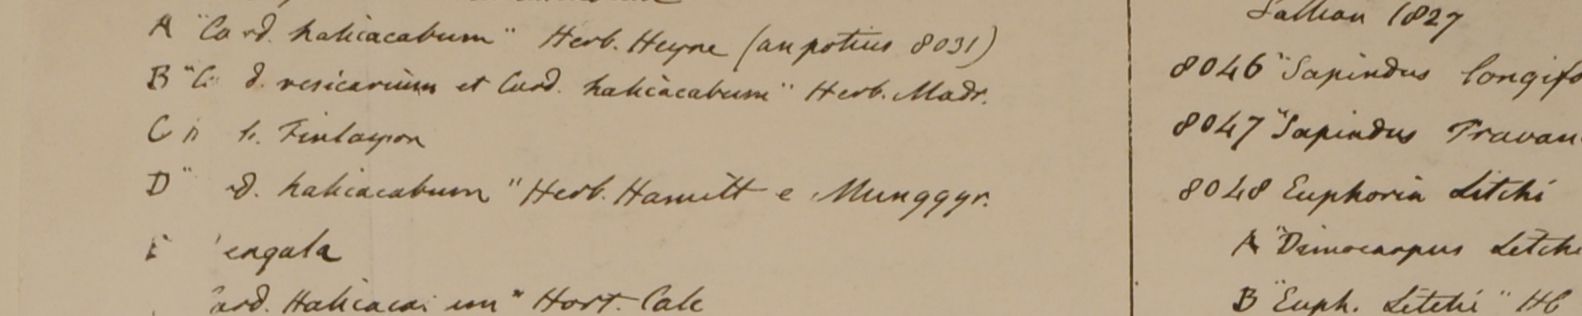 A "Card. halicacabum" Herb. Heyne (an potius 8031)
B "C d. vesicarium et Card. halicacabum" Herb. Madr.
C Finlayson
D " d. halicacabum" Herb. Hamilt e Munggyr.
E engala
ard. Halicaca um" Hort. Calc
1827
8046 "Sapindus longifo
8047 "Sapindus Travan
8048 Euphoria Litchi
A "Dimocarpus Litchi
B "Euph. Litchi" HC